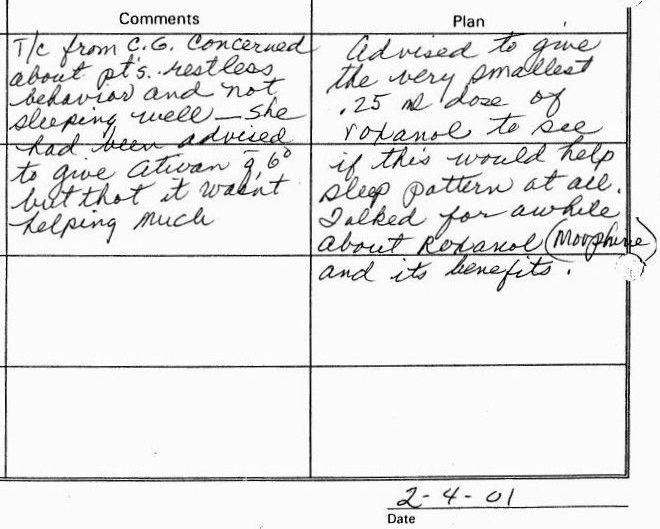 Comments
T/c from C.G. Concerned
about pt's. restless
behavior and not
sleeping well — she
had been advised
to give Ativan q̄ 6°
but that it wasn't
helping much
Plan
Advised to give
the very smallest
.25 ml dose of
roxanol to see
if this would help
sleep pattern at all.
Talked for awhile
about Roxanol (Morphine)
and its benefits.
2-4-01
Date